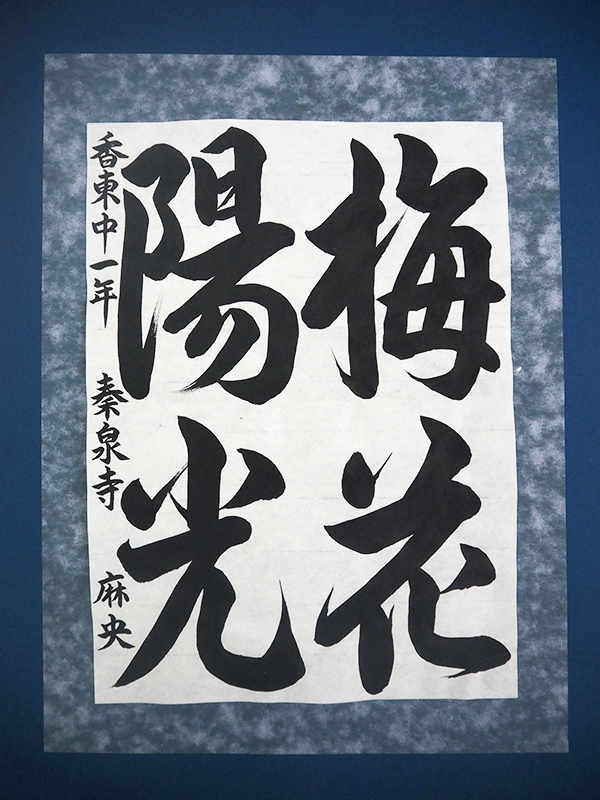 梅花
陽光
香東中一年 秦泉寺 麻央